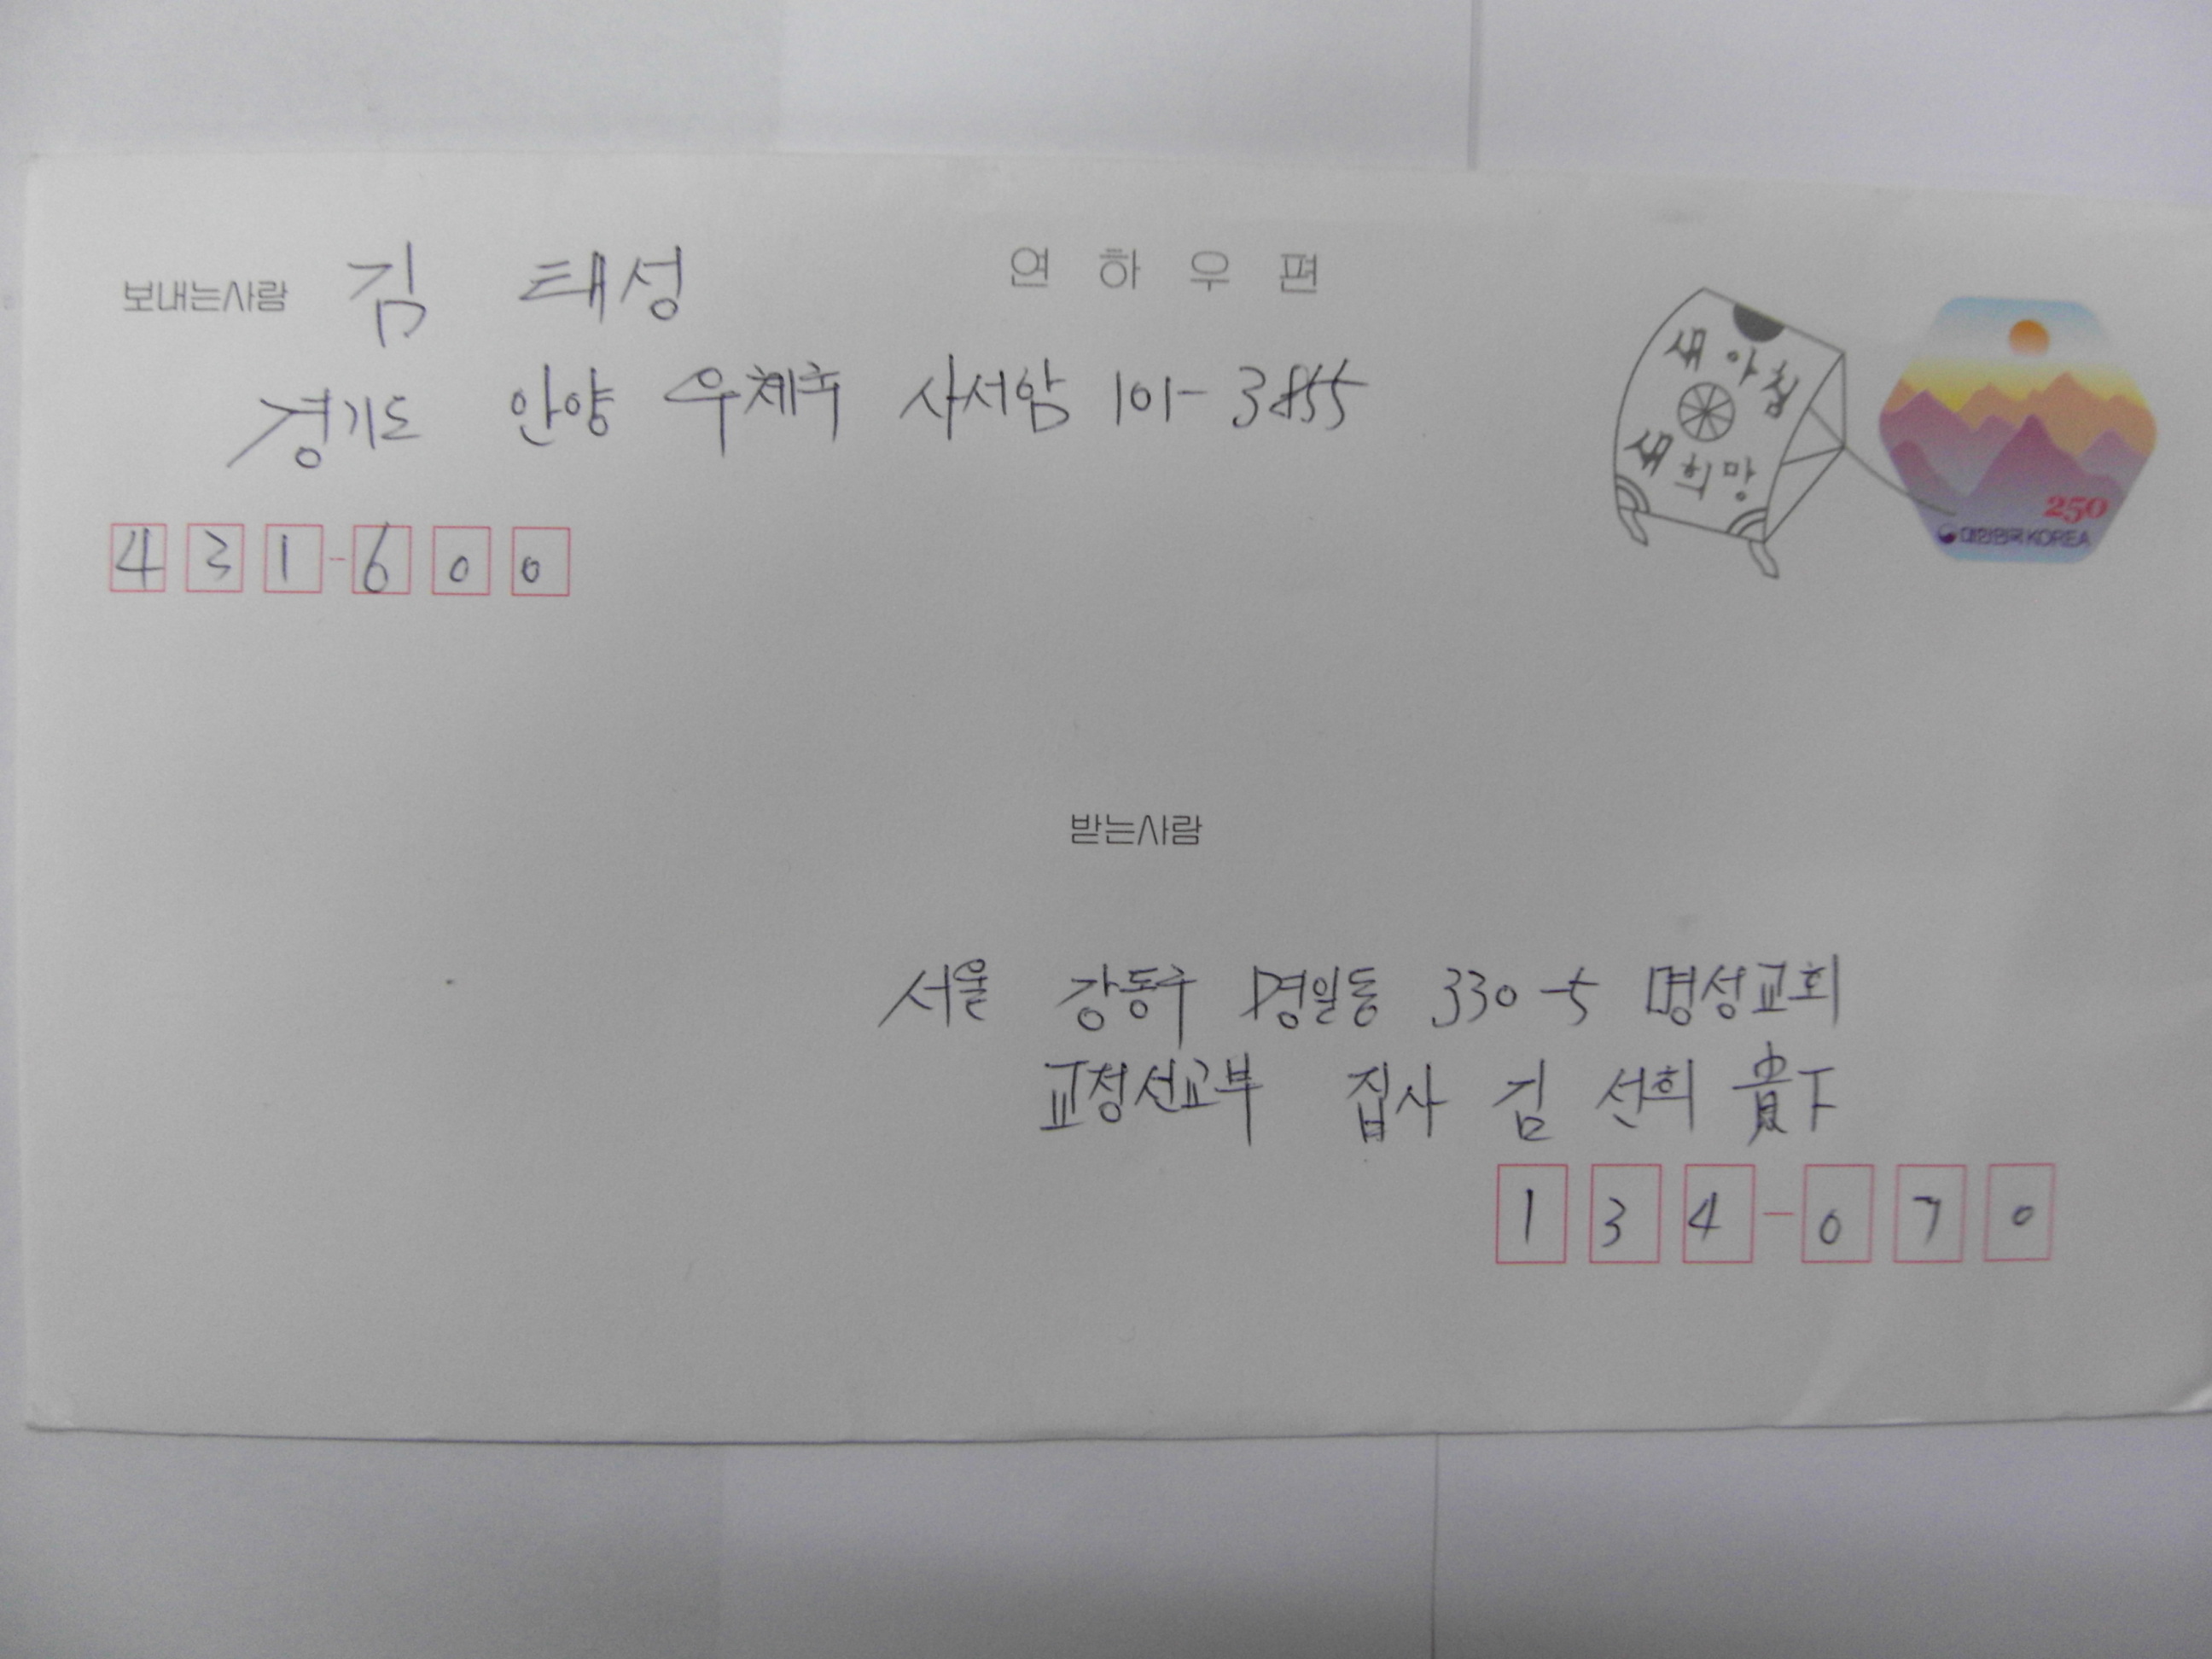 보내는사람 김 태성
연 하 우 편
경기도 안양 우체국 사서암 101-3855
431-600
새 아침
새 희망
250
대한민국 KOREA
받는사람
서울 강동구 명일동 330-5 명성교회
교정선교부 집사 김 선희 貴下
134-070